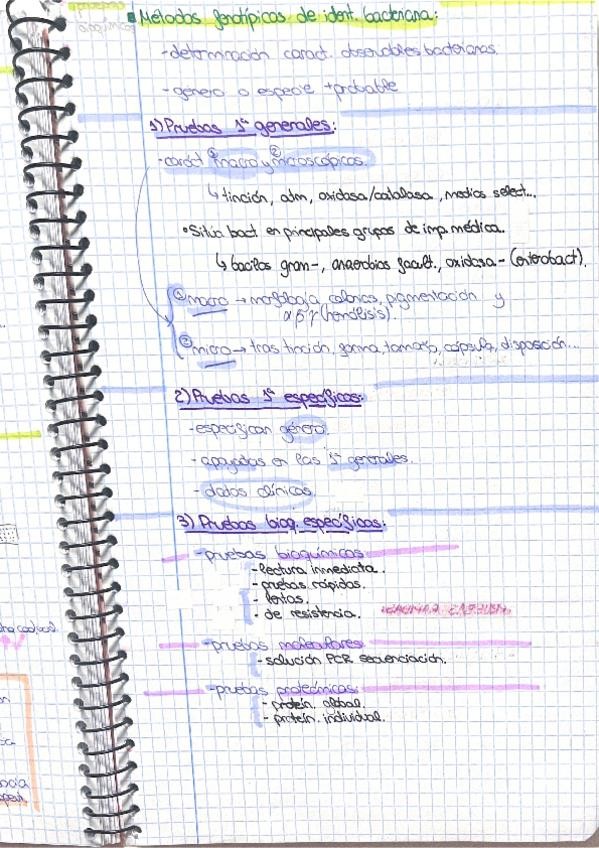 pruebas
bioquímicas
Métodos fenotípicos de ident. bacteriana:
-determinación caract. observables bacterianas.
-género o especie +probable
1) Pruebas 1ª generales:
-caráct ①macro y ②microscópicos.
↳ tinción, adm, oxidasa/catalasa, medios select...
• Sitúa bact en principales grupos de imp. médica.
↳ bacilos gram-, anaerobios facult., oxidasa- (enterobact).
① macro → morfología colonias, pigmentación y
α β γ (hemólisis).
② micro → tras tinción, forma, tamaño, cápsula, disposición...
2) Pruebas 1ª específicas:
-especifican género.
-apoyadas en las 1ª generales.
-datos clínicos
3) Pruebas bioq. específicas:
-pruebas bioquímicas
-lectura inmediata.
-pruebas rápidas.
-lentas.
-de resistencia.
-pruebas moleculares
-solución PCR secuenciación.
-pruebas proteómicas:
-proteín. global.
-proteín. individual.